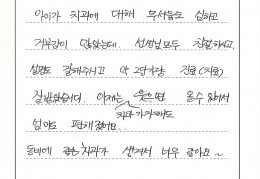 아이가 치과에 대해 무서움도 심하고
거부감이 많았는데 선생님 모두 친절하시고
설명도 잘해주시고 약 2달가량 진료(치료)
잘받았습니다. 이제는 웃으면 올수 있어서
치과가자해도
엄마도 편해졌어요.
동네에 좋은 치과가 생겨서 너무 좋아요~